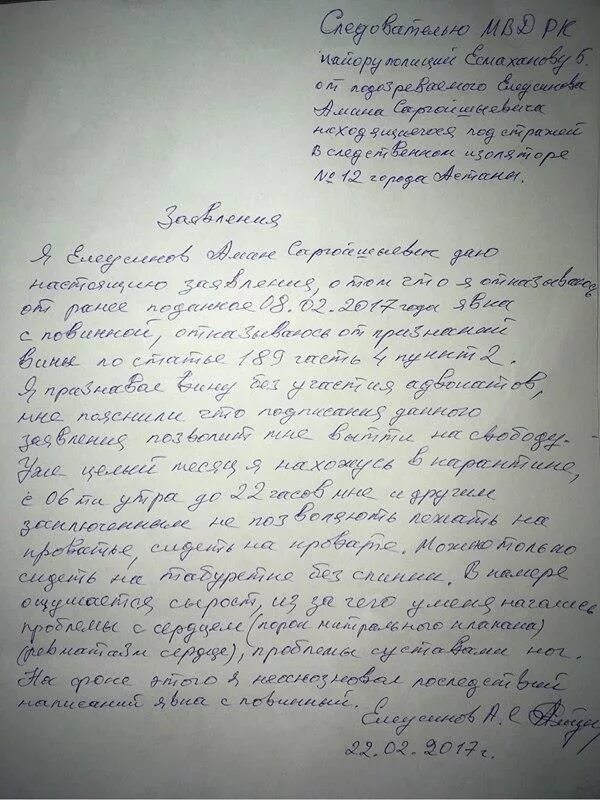 Следователю МВД РК
майору полиций Есмаханову Б.
от подозреваемого Елеусинова
Амина Саргойшыевича
находящиегося под стражей
в следственном изоляторе
№12 города Астаны.
Заявления
Я Елеусинов Аман Саргойшыевич даю
настоящию заявления, о том что я отказываюсь
от ранее поданное 08.02.2017 года явка
с повинной, отказываюсь от признаний
вины по статье 189 часть 4 пункт 2.
Я признавал вину без участия адвокатов,
мне пояснили что подписания данного
заявления позволит мне вытти на свободу.
Уже целый месяц я нахожусь в карантине,
с 06ти утра до 22 часов мне и другим
заключенным не позволяють лежать на
кроватье, сидеть на кровате. Можно только
сидеть на табуретке без спинки. В камере
ощущается сырост, из за чего у меня начались
проблемы с сердцем (порок митрального клапана)
(ревматазм сердце), проблемы суставами ног.
На фоне этого я неоснозновал последствий
написаний явка с повинный.
Елеусинов А.С
22.02.2017г.